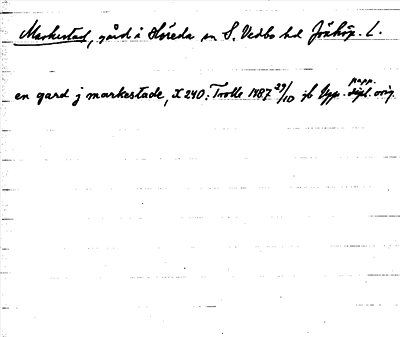 Markestad, gård i Höreda sn S. Vedbo hd Jönköp. L.
en gard j markestade, X 240: Trolle 1487 29/10 jb Upp. papp. dipl. orig.